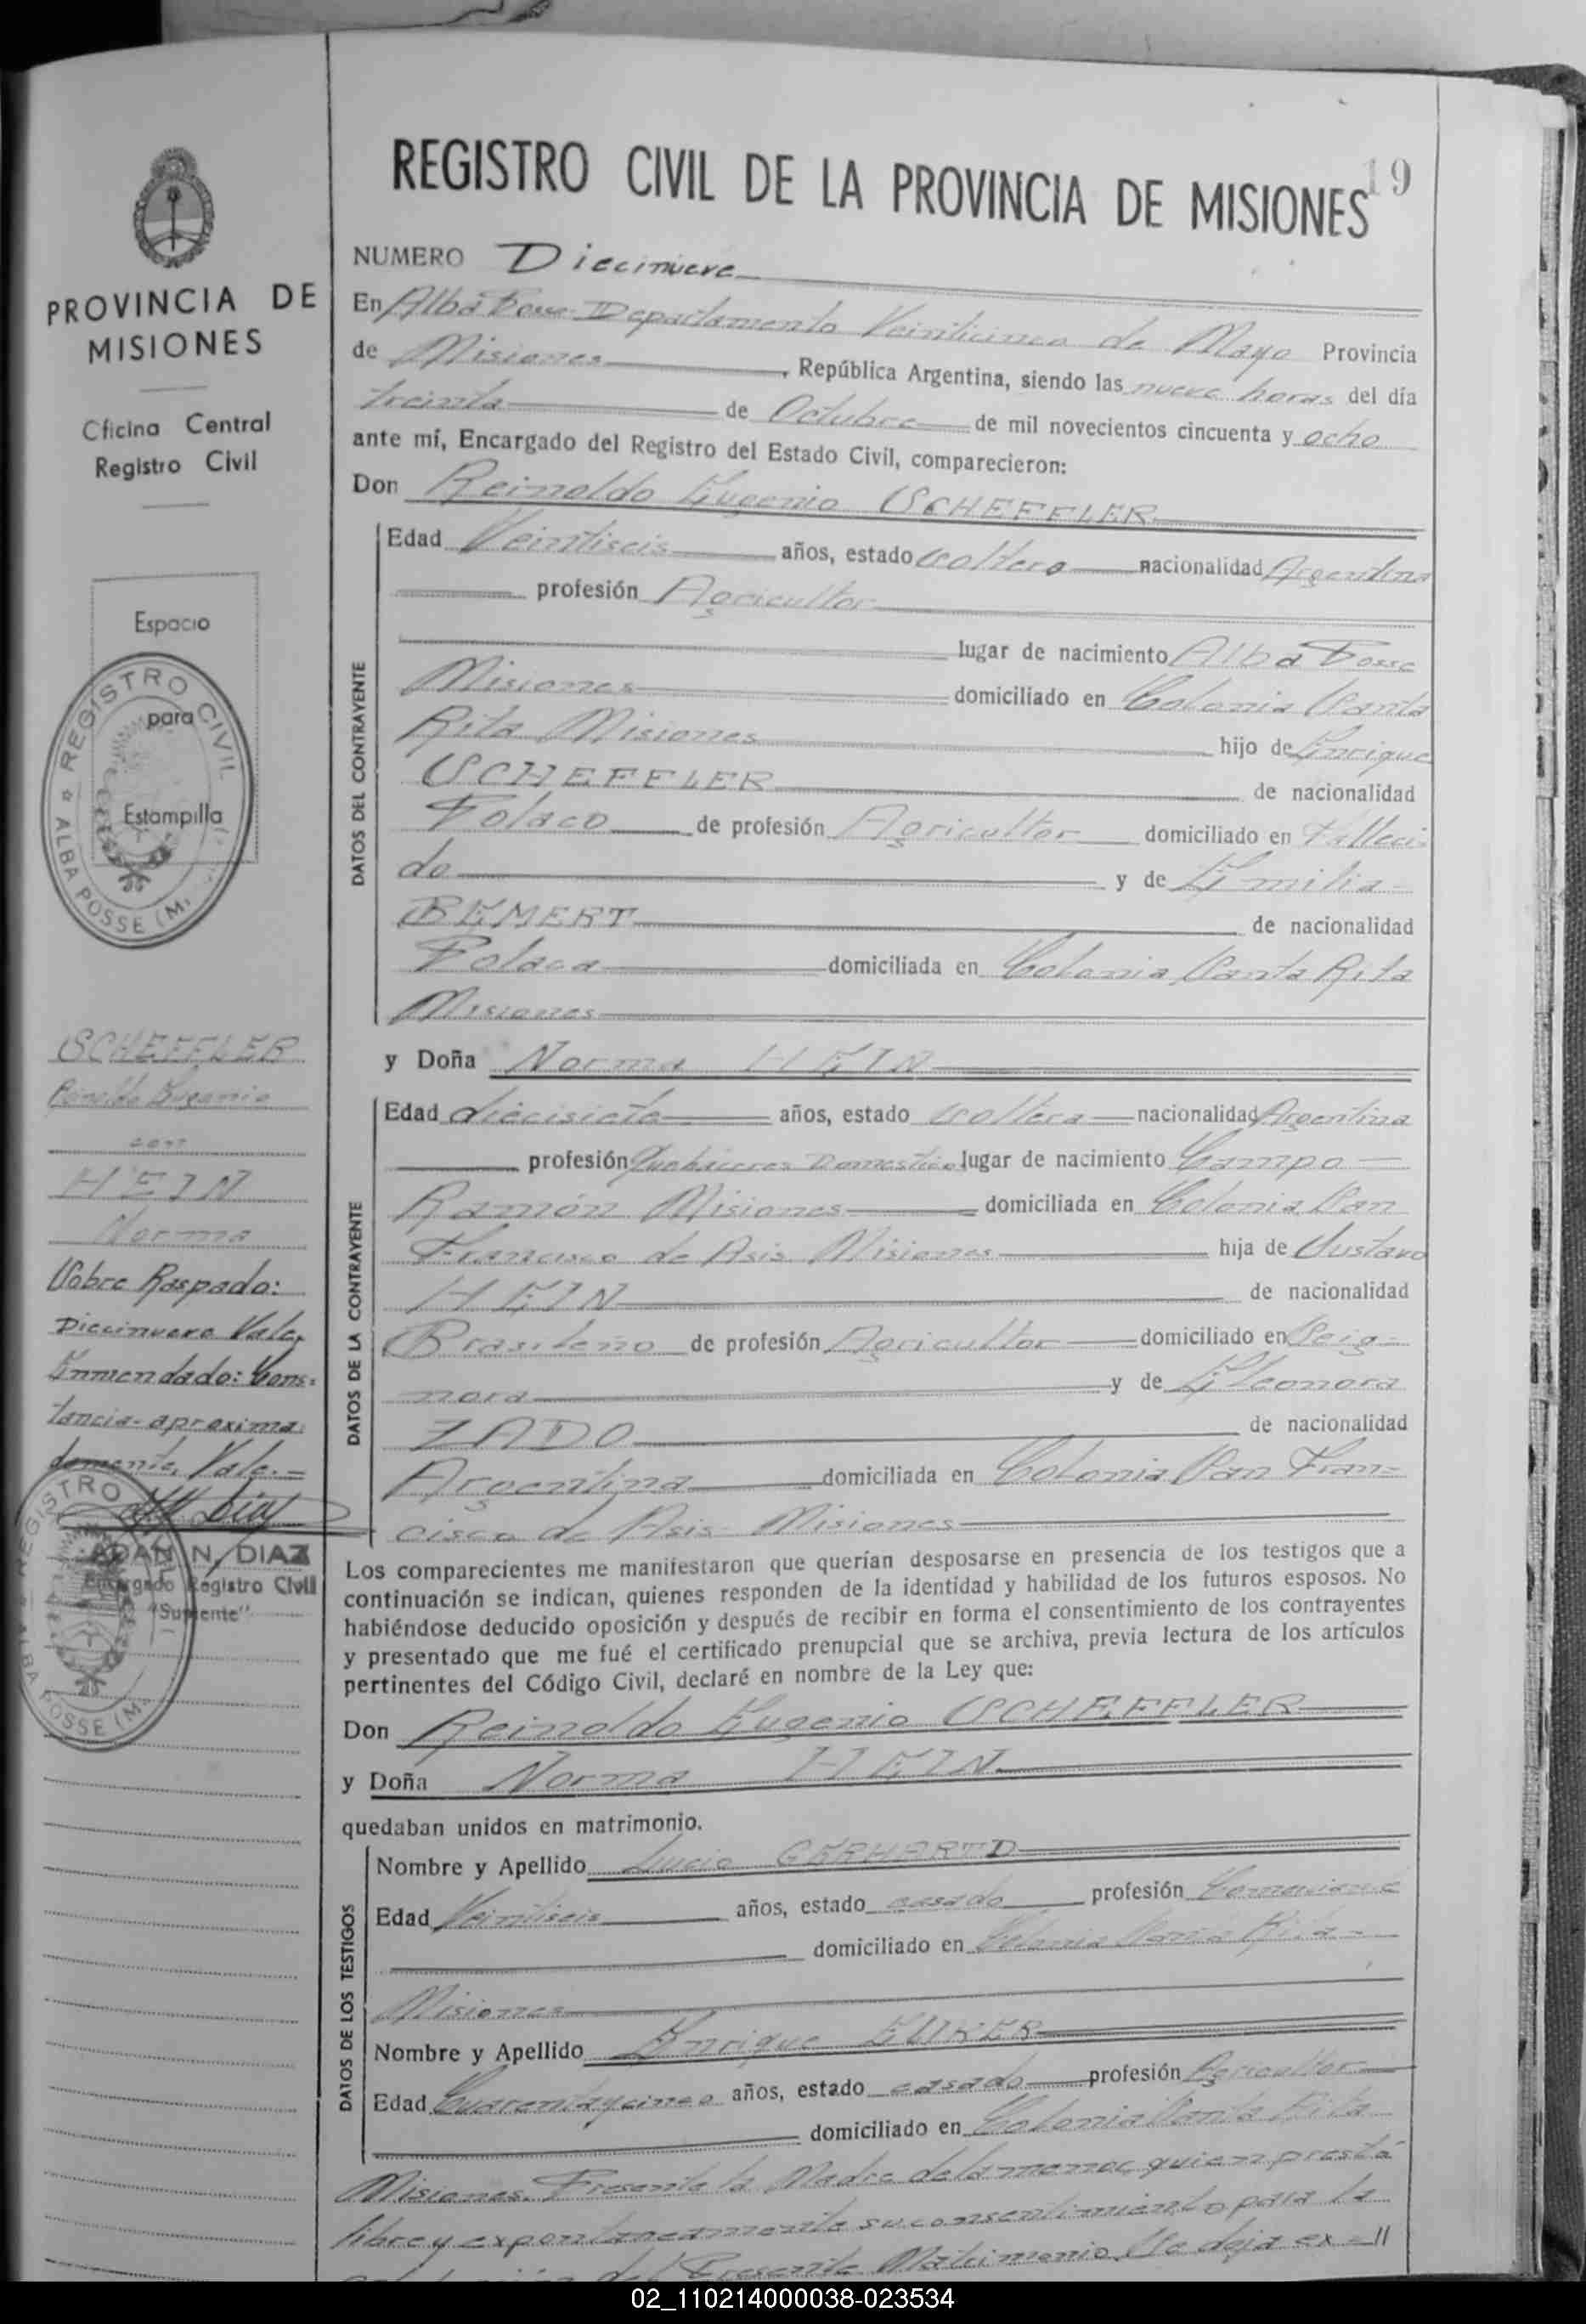 19
REGISTRO CIVIL DE LA PROVINCIA DE MISIONES
PROVINCIA DE
MISIONES
Oficina Central
Registro Civil
Espacio
para
Estampilla
REGISTRO CIVIL
ALBA POSSE (M.
SCHEFFLER
Reinaldo Eugenio
con
HEIN
Norma
Sobre Raspado:
Diecinueve Vale,
Enmendado: Cons-
tancia-aproxima
damente, Vale.-
ADAN N. DIAZ
Encargado Registro Civil
"Suplente"
REGISTRO
ALBA POSSE (M.
NUMERO Diecinueve
En Alba Posse Departamento Veinticinco de Mayo Provincia
de Misiones, República Argentina, siendo las nueve horas del día
treinta de Octubre de mil novecientos cincuenta y ocho
ante mí, Encargado del Registro del Estado Civil, comparecieron:
Don Reinoldo Eugenio SCHEFFLER
DATOS DEL CONTRAYENTE
Edad Veintiseis años, estado soltero nacionalidad Argentina
profesión Agricultor
lugar de nacimiento Alba Posse
Misiones domiciliado en Colonia Santa
Rita Misiones hijo de Enrique
SCHEFFLER de nacionalidad
Polaco de profesión Agricultor domiciliado en Falleci
do y de Emilia
BEMERT de nacionalidad
Polaca domiciliada en Colonia Santa Rita
Misiones
y Doña Norma HEIN
DATOS DE LA CONTRAYENTE
Edad diecisiete años, estado soltera nacionalidad Argentina
profesión Quehaceres Domestico lugar de nacimiento Campo
Ramón Misiones domiciliada en Colonia San
Francisco de Asis Misiones hija de Gustavo
HEIN de nacionalidad
Brasileño de profesión Agricultor domiciliado en Seig-
nora y de Eleonora
ZADO de nacionalidad
Argentina domiciliada en Colonia San Fran-
cisco de Asis Misiones
Los comparecientes me manifestaron que querían desposarse en presencia de los testigos que a
continuación se indican, quienes responden de la identidad y habilidad de los futuros esposos. No
habiéndose deducido oposición y después de recibir en forma el consentimiento de los contrayentes
y presentado que me fué el certificado prenupcial que se archiva, previa lectura de los artículos
pertinentes del Código Civil, declaré en nombre de la Ley que:
Don Reinoldo Eugenio SCHEFFLER
y Doña Norma HEIN
quedaban unidos en matrimonio.
DATOS DE LOS TESTIGOS
Nombre y Apellido Lucio GERHARDT
Edad Veintiseis años, estado casado profesión Comerciante
domiciliado en Colonia Santa Rita
Misiones
Nombre y Apellido Enrique
Edad Cuarentaycinco años, estado casado profesión Agricultor
domiciliado en Colonia Santa Rita
Misiones. Presente la Madre de la menor, quien prestá
libre y expontaneamente su consentimiento para la
del Presente Matrimonio. Se deja ex=//
02_110214000038-023534